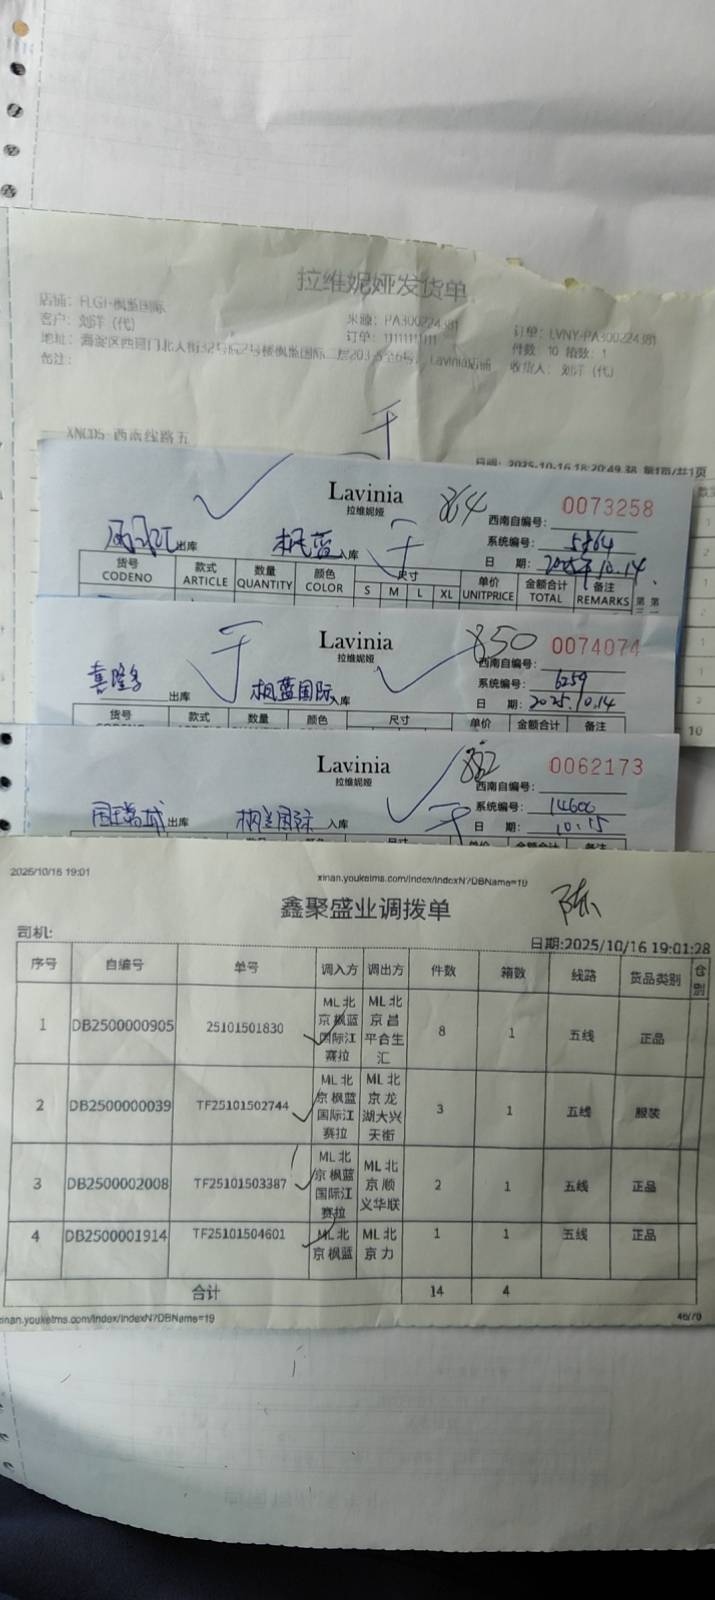 拉维妮娅发货单
店铺: FLGJ-枫蓝国际
客户: 刘洋 (代) 来源: PA300224381 订单: LVNY-PA300224381
地址: 海淀区西直门北大街32号院2号楼枫蓝国际二层203-5至6号, Lavinia店铺 订单: 1111111111 件数 10 箱数: 1
备注: 收货人: 刘洋 (代)
XNCD5-西南线路五
日期: 2025-10-16 18:20:49.38 第1页/共1页
Lavinia 864 0073258
拉维妮娅
西南自编号:
出库 枫蓝 入库 系统编号: 5864
日 期: 2025年10.14
货号 款式 数量 颜色 尺寸 单价 金额合计 备注
CODENO ARTICLE QUANTITY COLOR S M L XL UNITPRICE TOTAL REMARKS
Lavinia 850 0074074
拉维妮娅
西南自编号:
喜隆多 出库 枫蓝国际 入库 系统编号: 6259
日 期: 2025.10.14
货号 款式 数量 颜色 尺寸 单价 金额合计 备注
Lavinia 862 0062173
拉维妮娅
西南自编号:
国瑞城 出库 枫兰国际 入库 系统编号: 14600
日 期: 10.15
单价 金额合计 备注
10
2025/10/16 19:01 xinan.youkelms.com/index/indexN?DBName=19
鑫聚盛业调拨单 陈
司机: 日期:2025/10/16 19:01:28
序号 自编号 单号 调入方 调出方 件数 箱数 线路 货品类别 仓别
1 DB2500000905 25101501830 ML 北京枫蓝国际江赛拉 ML 北京昌平合生汇 8 1 五线 正品
2 DB2500000039 TF25101502744 ML 北京枫蓝国际江赛拉 ML 北京龙湖大兴天街 3 1 五线 服装
3 DB2500002008 TF25101503387 ML 北京枫蓝国际江赛拉 ML 北京顺义华联 2 1 五线 正品
4 DB2500001914 TF25101504601 ML 北京枫蓝 ML 北京力 1 1 五线 正品
合计 14 4
xinan.youkelms.com/index/indexN?DBName=19 46/79